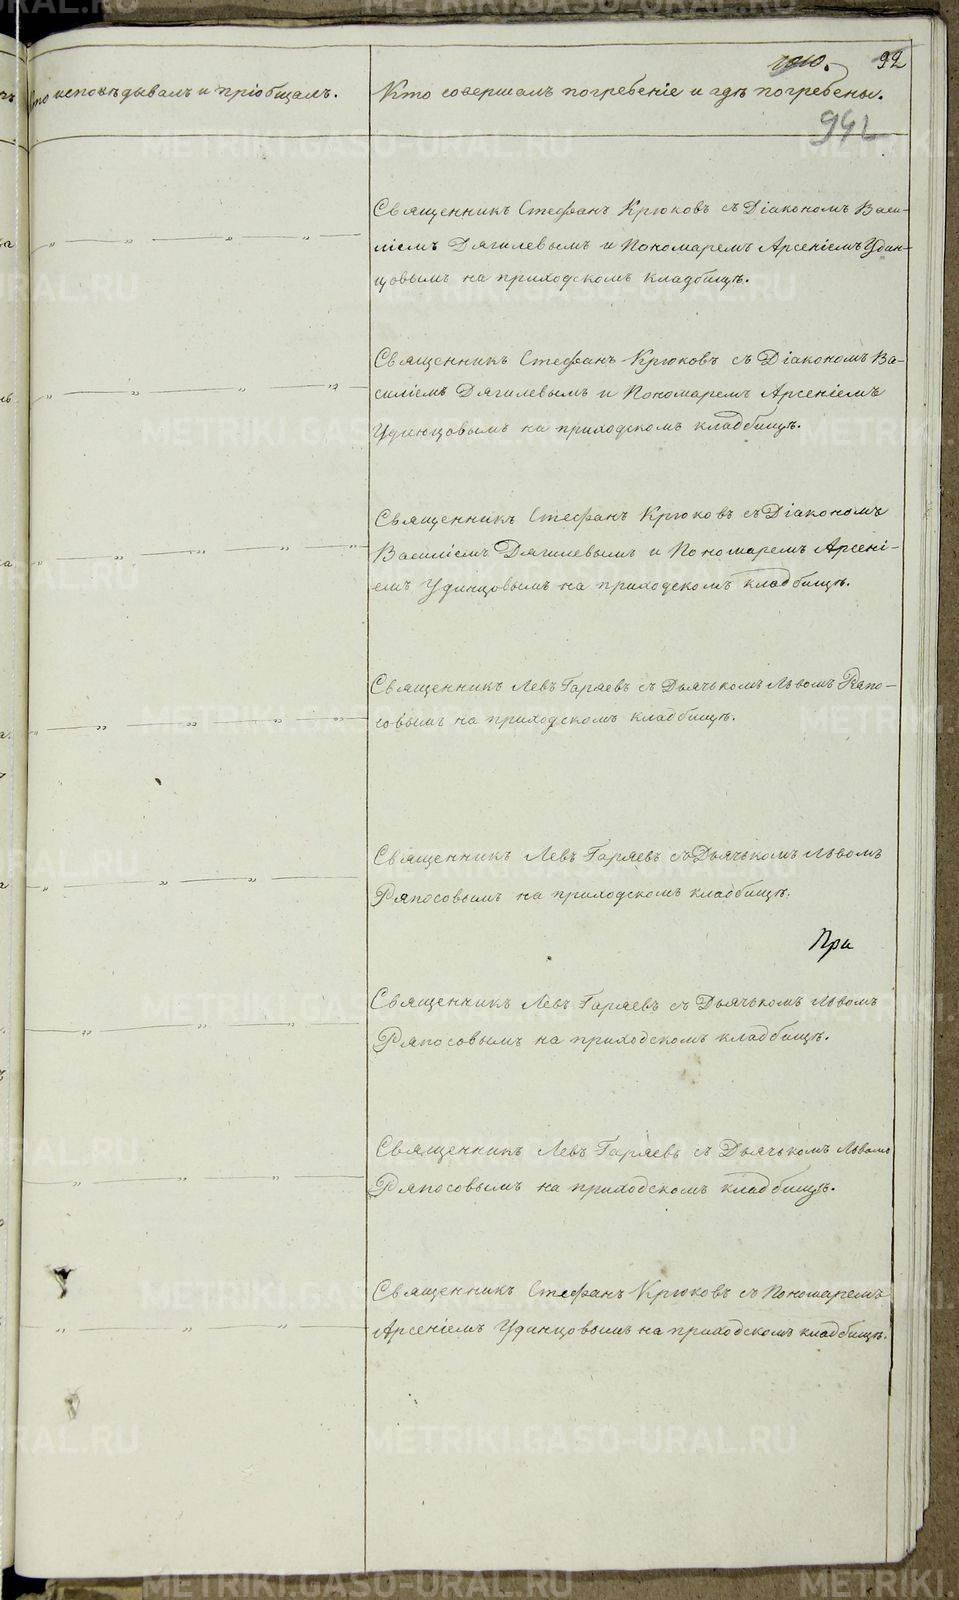 92
Кто исповѣдывалъ и пріобщалъ.
Кто совершалъ погребеніе и гдѣ погребены.
942
Священникъ Стефанъ Крюковъ съ Діакономъ Васи-
ліемъ Дягилевымъ и Пономаремъ Арсеніемъ Удин-
цовымъ на приходскомъ кладбищѣ.
Священникъ Стефанъ Крюковъ съ Діакономъ Ва-
силіемъ Дягилевымъ и Пономаремъ Арсеніемъ
Удинцовымъ на приходскомъ кладбищѣ.
Священникъ Стефанъ Крюковъ съ Діакономъ
Василіемъ Дягилевымъ и Пономаремъ Арсені-
емъ Удинцовымъ на приходскомъ кладбищѣ.
Священникъ Левъ Гаряевъ съ Дьячькомъ Львомъ Ряпо-
совымъ на приходскомъ кладбищѣ.
Священникъ Левъ Гаряевъ съ Дьячькомъ Львомъ
Ряпосовымъ на приходскомъ кладбищѣ.
При
Священникъ Левъ Гаряевъ съ Дьячькомъ Львомъ
Ряпосовымъ на приходскомъ кладбищѣ.
Священникъ Левъ Гаряевъ съ Дьячькомъ Львомъ
Ряпосовымъ на приходскомъ кладбищѣ.
Священникъ Стефанъ Крюковъ съ Пономаремъ
Арсеніемъ Удинцовымъ на приходскомъ кладбищѣ.
METRIKI.GASO-URAL.RU